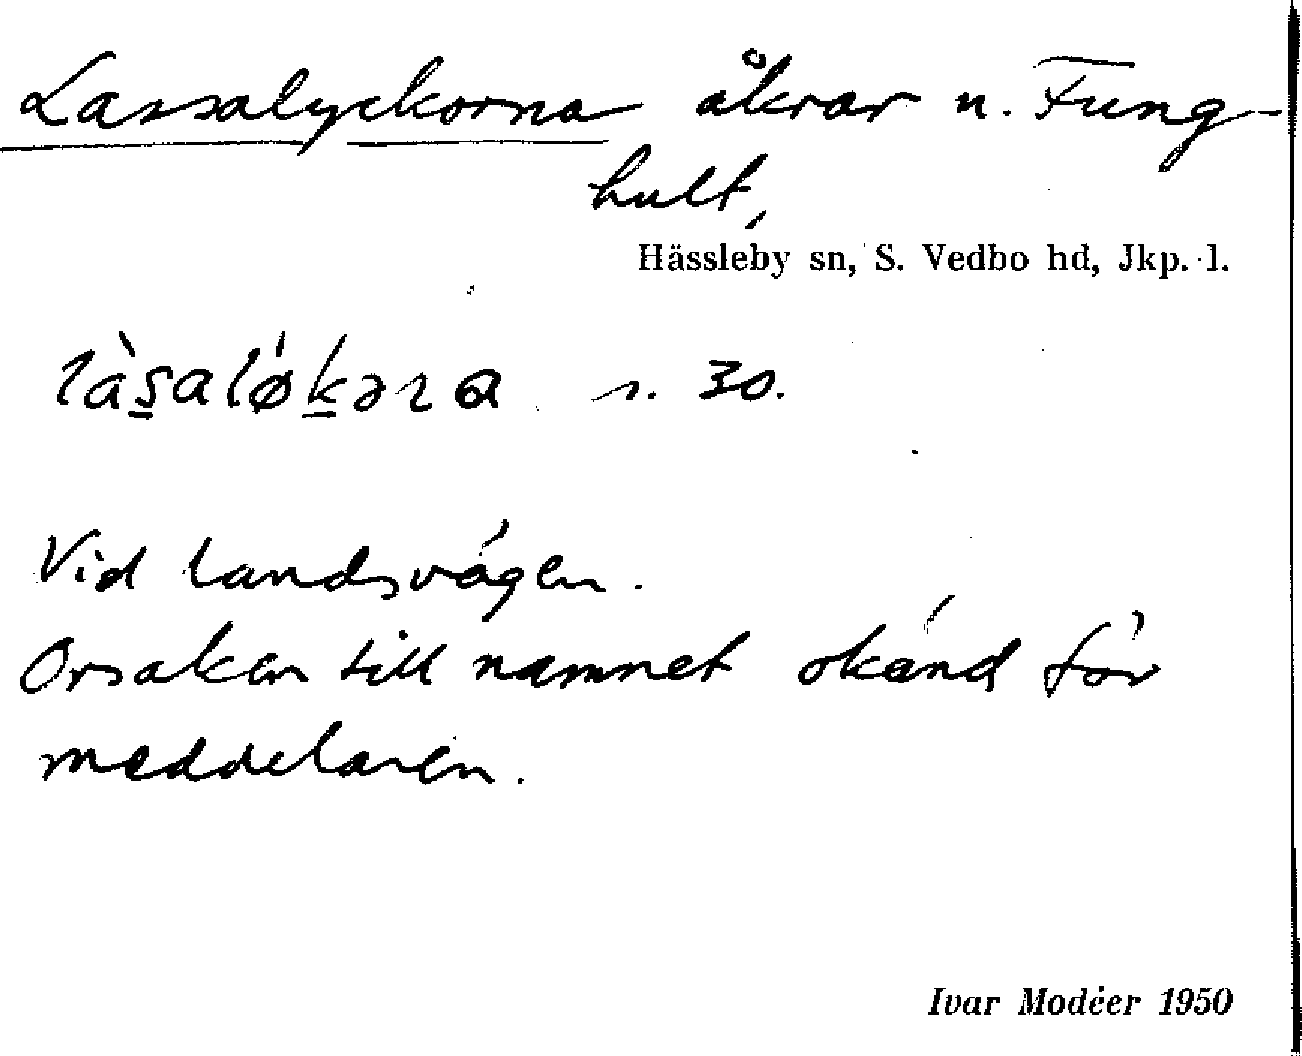 Lassalyckorna åkrar u. Fung-
hult,
Hässleby sn, S. Vedbo hd, Jkp. l.
s. 30.
Vid landsvägen.
Orsaken till namnet okänd för
meddelaren.
Ivar Modéer 1950